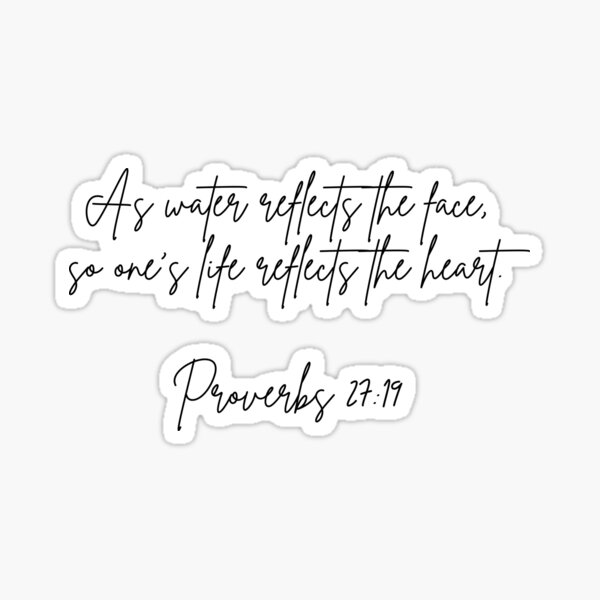 As water reflects the face,
so one's life reflects the heart.
Proverbs 27:19